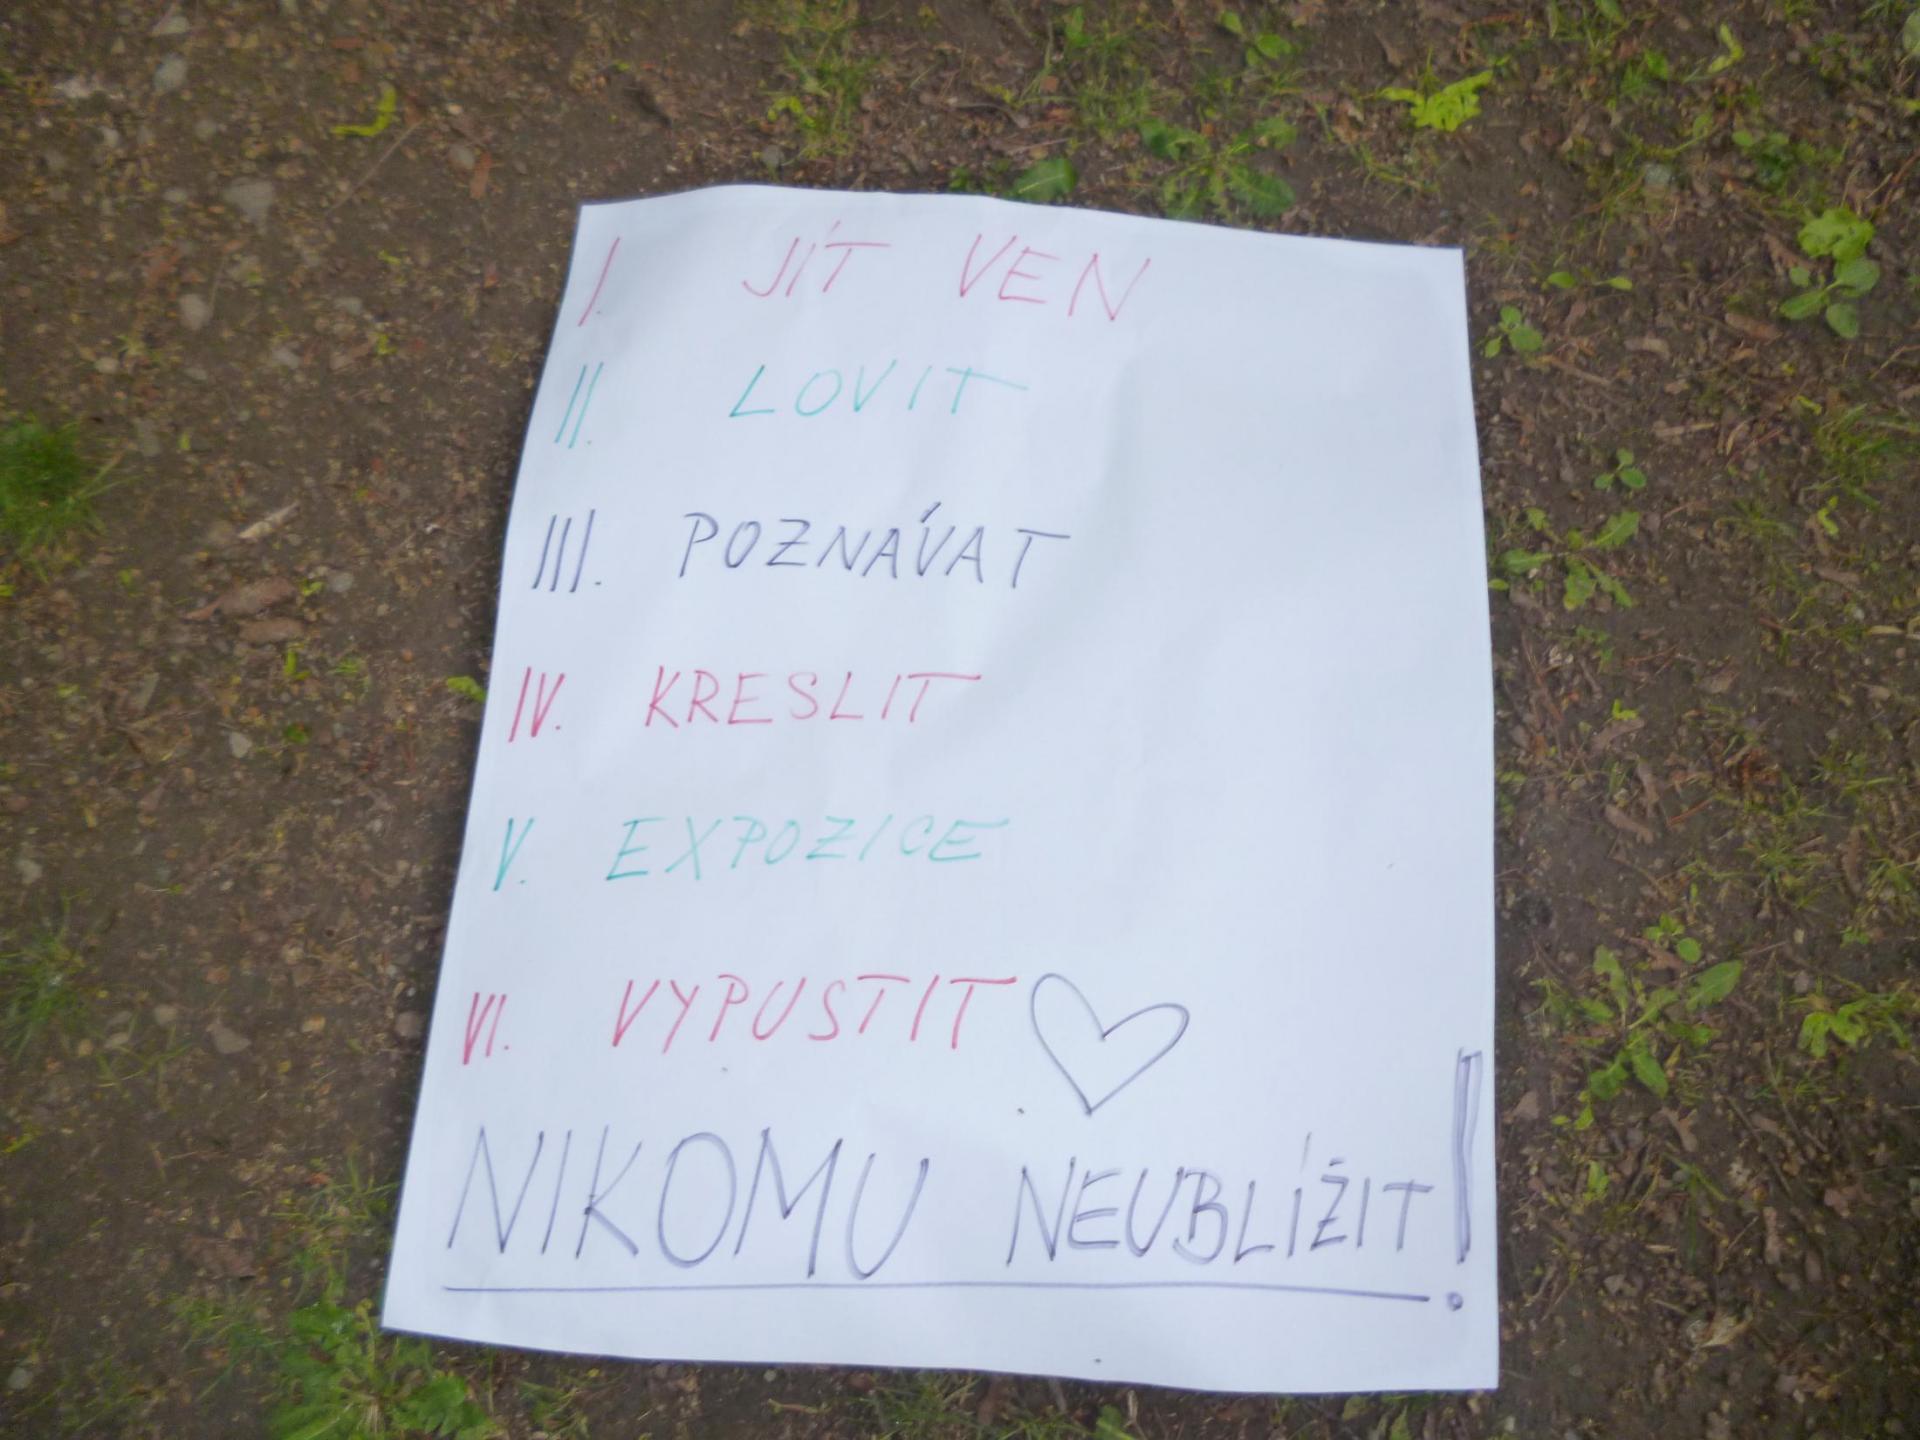 I. JÍT VEN
II. LOVIT
III. POZNÁVAT
IV. KRESLIT
V. EXPOZICE
VI. VYPUSTIT
NIKOMU NEUBLÍŽIT!